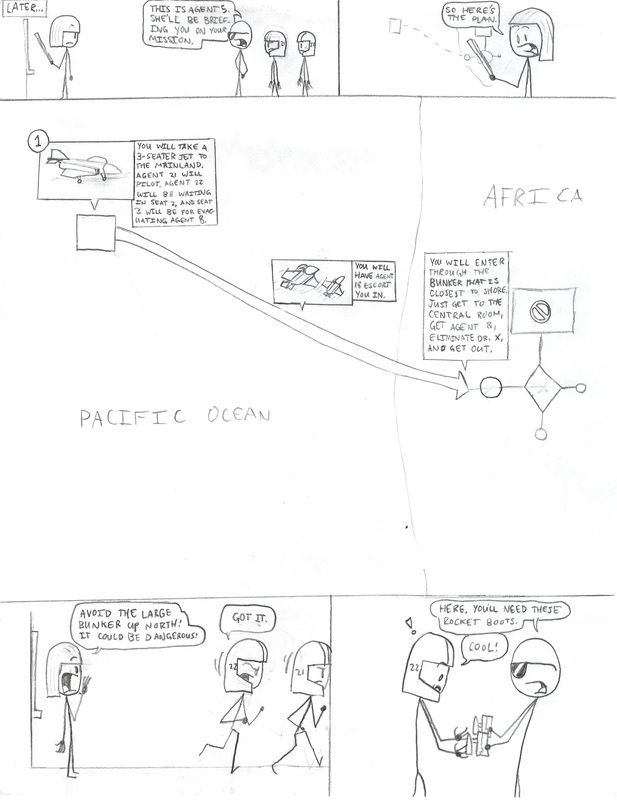 LATER...
THIS IS AGENT 5.
SHE'LL BE BRIEF-
ING YOU ON YOUR
MISSION.
21
22
SO HERE'S
THE PLAN.
1
YOU WILL TAKE A
3-SEATER JET TO
THE MAINLAND.
AGENT 21 WILL
PILOT, AGENT 22
WILL BE WAITING
IN SEAT 2, AND SEAT
3 WILL BE FOR EVAC-
UATING AGENT 8.
AFRICA
YOU WILL
HAVE AGENT
18 ESCORT
YOU IN.
YOU WILL ENTER
THROUGH THE
BUNKER THAT IS
CLOSEST TO SHORE.
JUST GET TO THE
CENTRAL ROOM,
GET AGENT 8,
ELIMINATE DR. X,
AND GET OUT.
X
PACIFIC OCEAN
AVOID THE LARGE
BUNKER UP NORTH!
IT COULD BE DANGEROUS!
GOT IT.
22
21
HERE, YOU'LL NEED THESE
ROCKET BOOTS.
COOL!
!
22